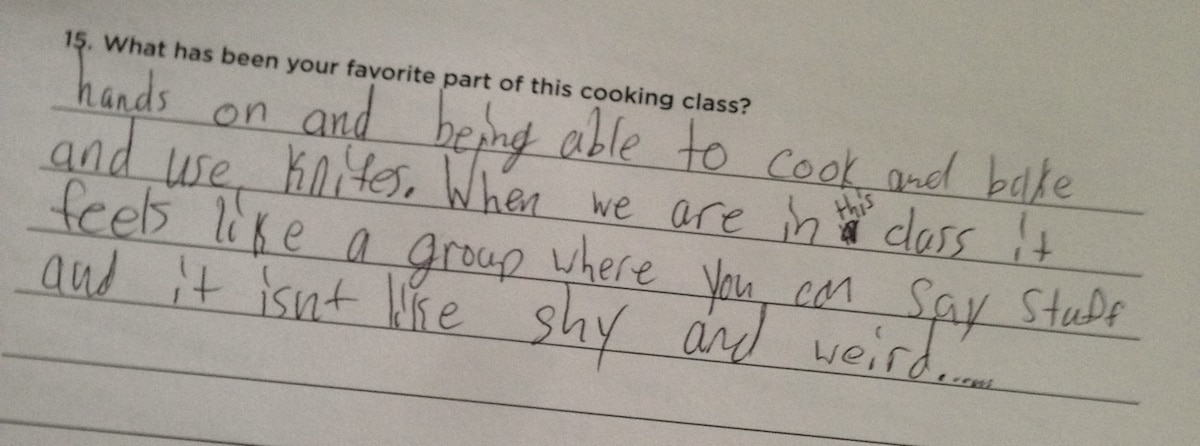 15. What has been your favorite part of this cooking class?
hands on and being able to cook and bake
and use knifes. When we are in this class it
feels like a group where you can say stuff
and it isnt like shy and weird.......